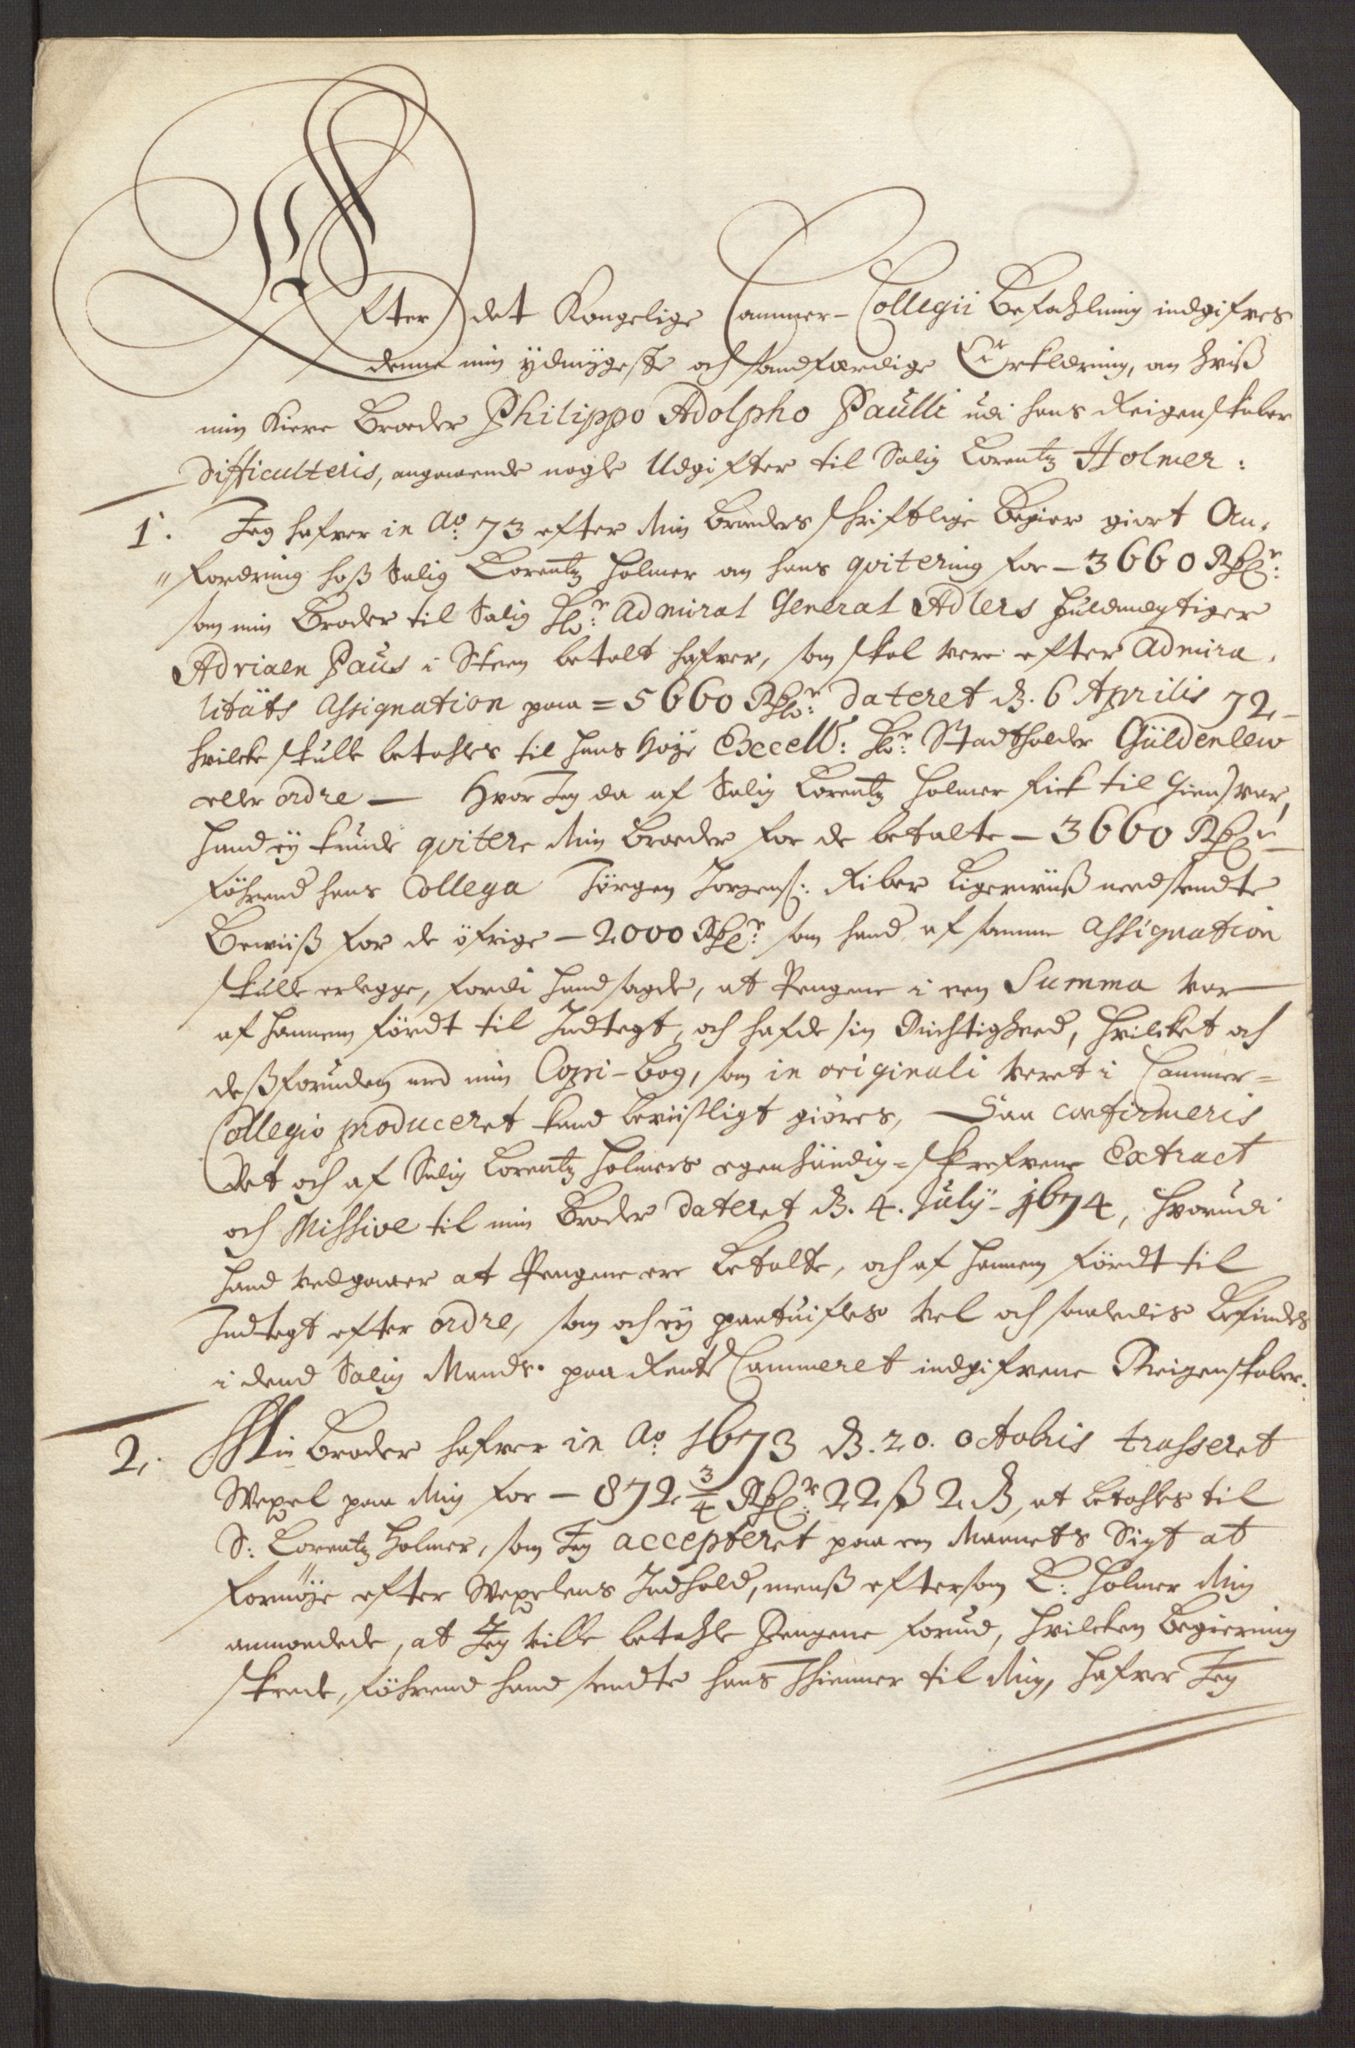 Efter det Kongelige Cammer-Collegii Befahlning indgifves
denne min ydmygeste och sandfærdige Erklæring, om hviß
min Kiere Broeder Philippo Adolpho Paulli udi hans Reigenskaber
Difficulteris, angaaende nogle Udgifter til Salig Lorentz Holmer:
1. Jeg hafver in Ao. 73 efter Min Broeders schriftlige Begier giort An-
"fordring hoß Salig Lorentz Holmer om hans qvitering for - 3660 Rdlr:
som min Broder til Salig Hr: Admiral General Adlers Fuldmegtiger
Adriaen Paus i Skeen betalt hafver, som skal vere efter Admira-
litäts Assignation paa = 5660 Rdlr: Dateret d. 6 Aprilis 72 -
hvilcke skulle betahles til hans Höje Excell: Hr: Stadtholder Güldenlew
eller ordre - Hvor Jeg da af Salig Lorentz Holmer fick til Giensvar,
Hand ey kunde qvitere Min Broeder for de betalte - 3660 Rdlr -
förend hans Collega Jörgen Jörgens: Riber ligerviiß nedsendte
Beviiß for de öfrige - 2000 Rdlr: som hand af samme Assignation
skulle erlegge, fordi Hand sagde, at Pengene i een Summa var
af hannem fördt til Indtegt, och hafde sin Richtighed, hvilcket och
deßforuden med min Copi-bog, som in originali veret i Cammer=
Collegio produceret kand beviisligt giöres, Saa confirmeris
det och af Salig Lorentz Holmers egenhändig-skrefvene Extract
och Missive til min Broder Dateret d. 4. July - 1674, hvorudi
hand vedgaaer at Pengene ere betalte, och af hannem fördt til
Indtegt efter ordre, som och ey paatvifles vel och saaledis befindes
i dend Salig Mands paa Rente Cammeret indgifvene Reigenskaber.
2. Min Broder hafver in Ao 1673 d. 20. Octobris trasseret
Wexel paa Mig for - 872 3/4 Rdlr: 22 ß 2 d, at betahles til
S: Lorentz Holmer, som Jeg accepteret paa en Maanets Sigt at
fornöje efter Wexelens Indhold, menß eftersom L: Holmer Mig
anmodede, at Jeg ville betahle Pengene forud, hvilcken begiering
skede, förend hand sendte hans Thienner til Mig, hafver Jeg